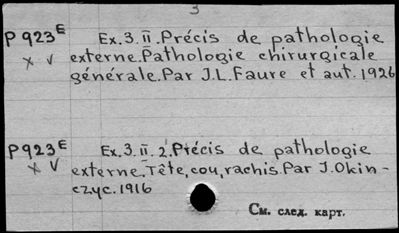 3
P 923ᴱ Ex. 3. II. Précis de pathologie
x v externe. Pathologie chirurgicale
générale. Par J. L. Faure et aut. 1926
P 923ᴱ Ex. 3. II. 2. Précis de pathologie
x v externe. Tête, cou, rachis. Par J. Okin-
czyc. 1916
См. след. карт.